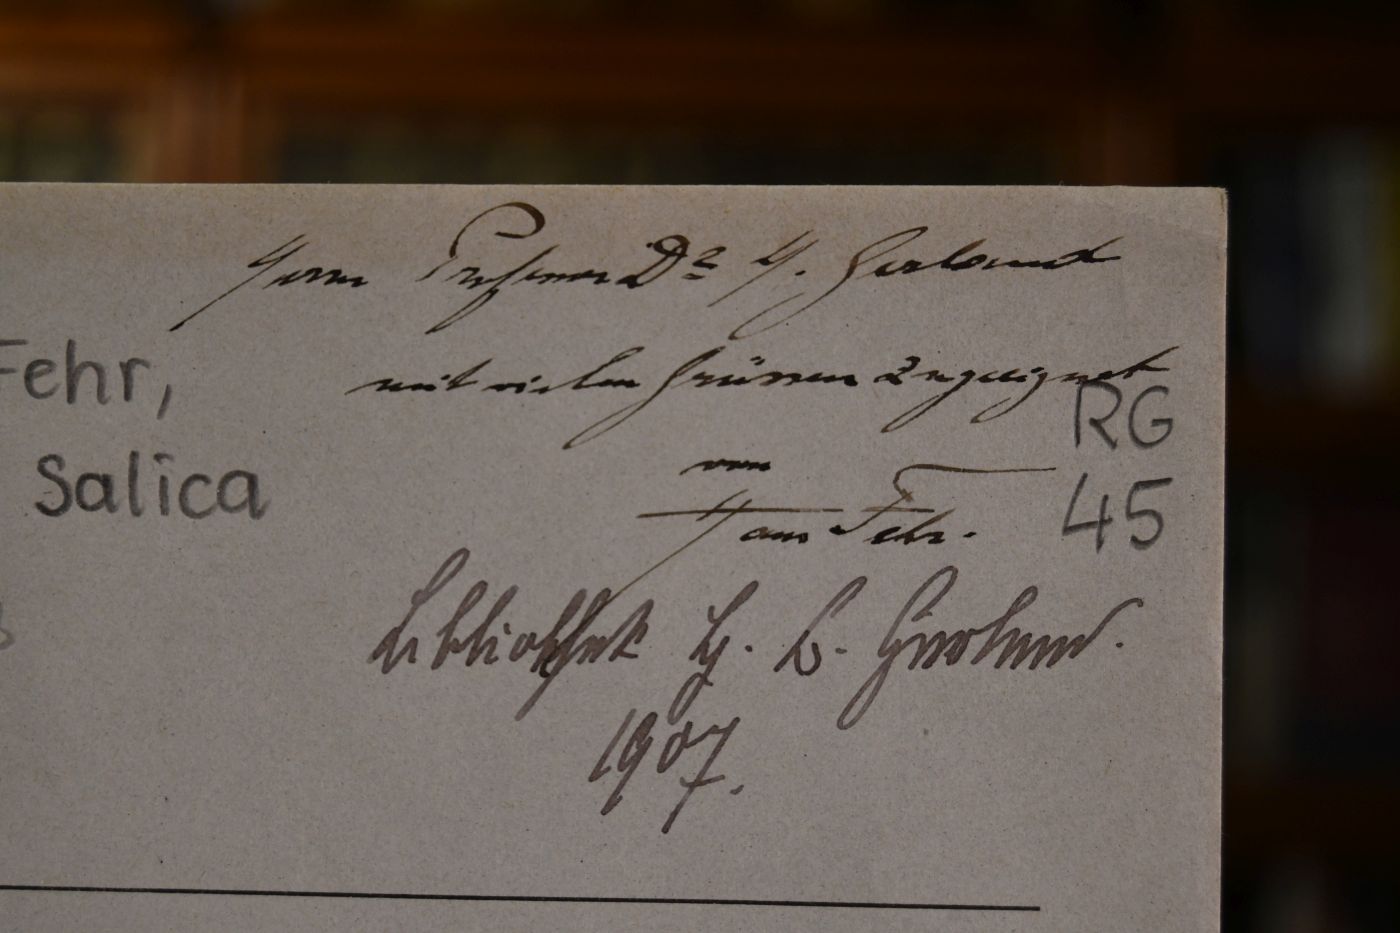 Herrn Professor Dr H. Gerland
mit vielen Grüssen zugeeignet
von
Hans Fehr.
Fehr,
Salica
RG
45
Bibliothek H. B. Gerland.
1907.